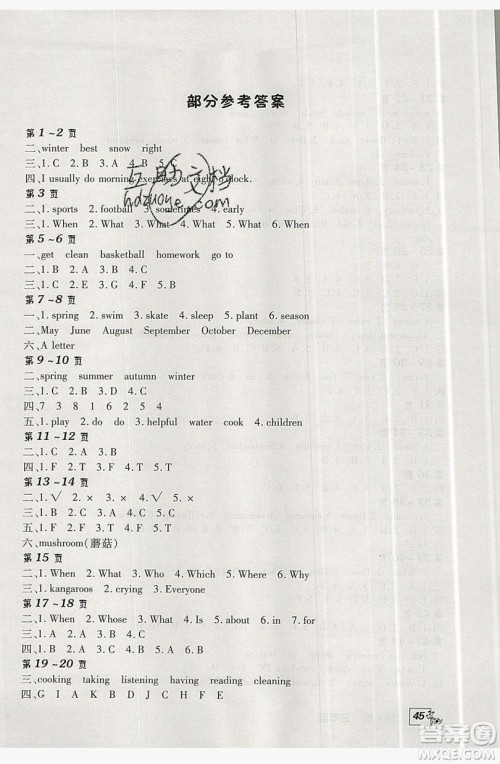 部分参考答案
第1~2页
二、winter best snow right
三、1. C 2. B 3. A 4. B 5. C
四、I usually do morning exercises at eight o'clock.
第3页
三、1. sports 2. football 3. sometimes 4. early
第5~6页
一、get clean basketball homework go to
二、1. B 2. A 3. A 4. C
三、1. C 2. E 3. G 4. F 5. B
第7~8页
一、1. spring 2. swim 3. skate 4. sleep 5. plant 6. season
二、May June August September October December
六、A letter
第9~10页
二、spring summer autumn winter
三、1. C 2. B 3. D 4. C
四、7 3 8 1 6 5 2 4
五、1. play 2. do 3. helpful water cook 4. children
第11~12页
四、1. F 2. T 3. F 4. T 5. T
第13~14页
二、1. √ 2. × 3. √ 4. ×
三、1. B 2. C 3. A 4. C
五、1. F 2. T 3. F 4. F 5. T
六、mushroom(蘑菇)
第15页
一、1. When 2. What 3. Who 4. Which 5. Where
二、1. kangaroos 2. crying 3. Everyone
第17~18页
二、1. When 2. Whose 3. What 4. Is 5. about 6. of
三、1. B 2. C 3. A 4. A 5. C
第19~20页
三、cooking taking listening having reading cleaning
四、G I A K B D C J H F E
45
互助文档
hdzuoye.com